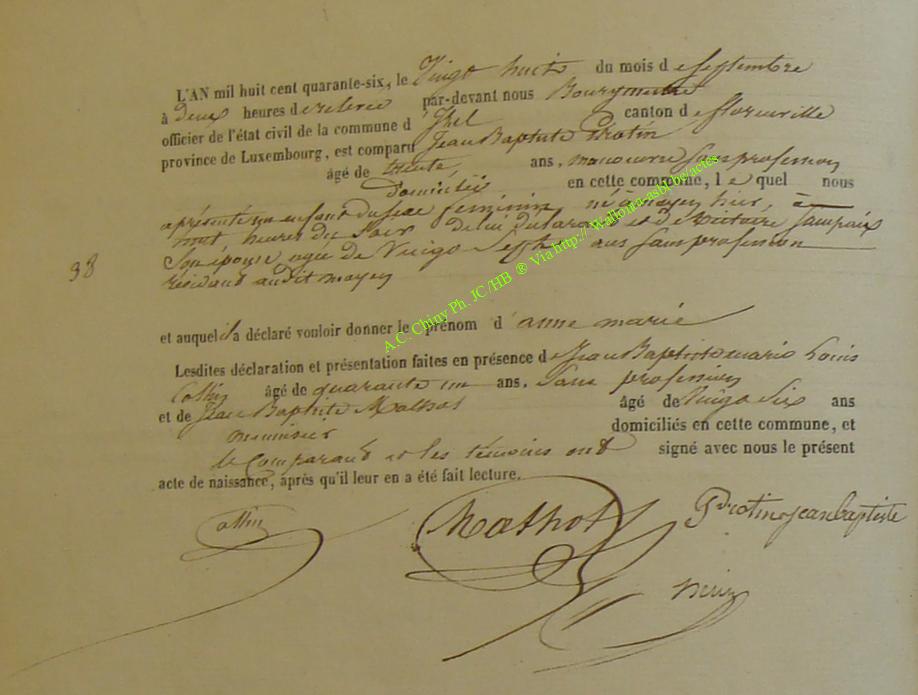 L'AN mil huit cent quarante-six, le Vingt huit du mois d e Septembre
à deux heures d e relevée par-devant nous
officier de l'état civil de la commune d' Izel canton d e florenville
province de Luxembourg, est comparu Jean Baptiste Protin
âgé de trente ans, manoeuvre sans profession
Domicilié en cette commune, l e quel nous
a présenté un enfant du sexe feminin né à moyen hier, à
huit heures du Soir de lui déclarant et de Victoire
Son épouse agée de Vingt Sept ans Sans profession
résidant audit moyen
38
et auquel il a déclaré vouloir donner le prénom d' anne marie
Lesdites déclaration et présentation faites en présence d e Jean Baptiste marie Louis
Collin âgé de quarante un ans, Sans profession
et de Jean Baptiste Mathot âgé de Vingt Six ans
menuisier domiciliés en cette commune, et
le Comparant et les témoins ont signé avec nous le présent
acte de naissance, après qu'il leur en a été fait lecture.
Collin Mathot Protin jean baptiste
A.C. Chiny Ph. JC/HB ® Via http://Wallonia-asbl.be/actes